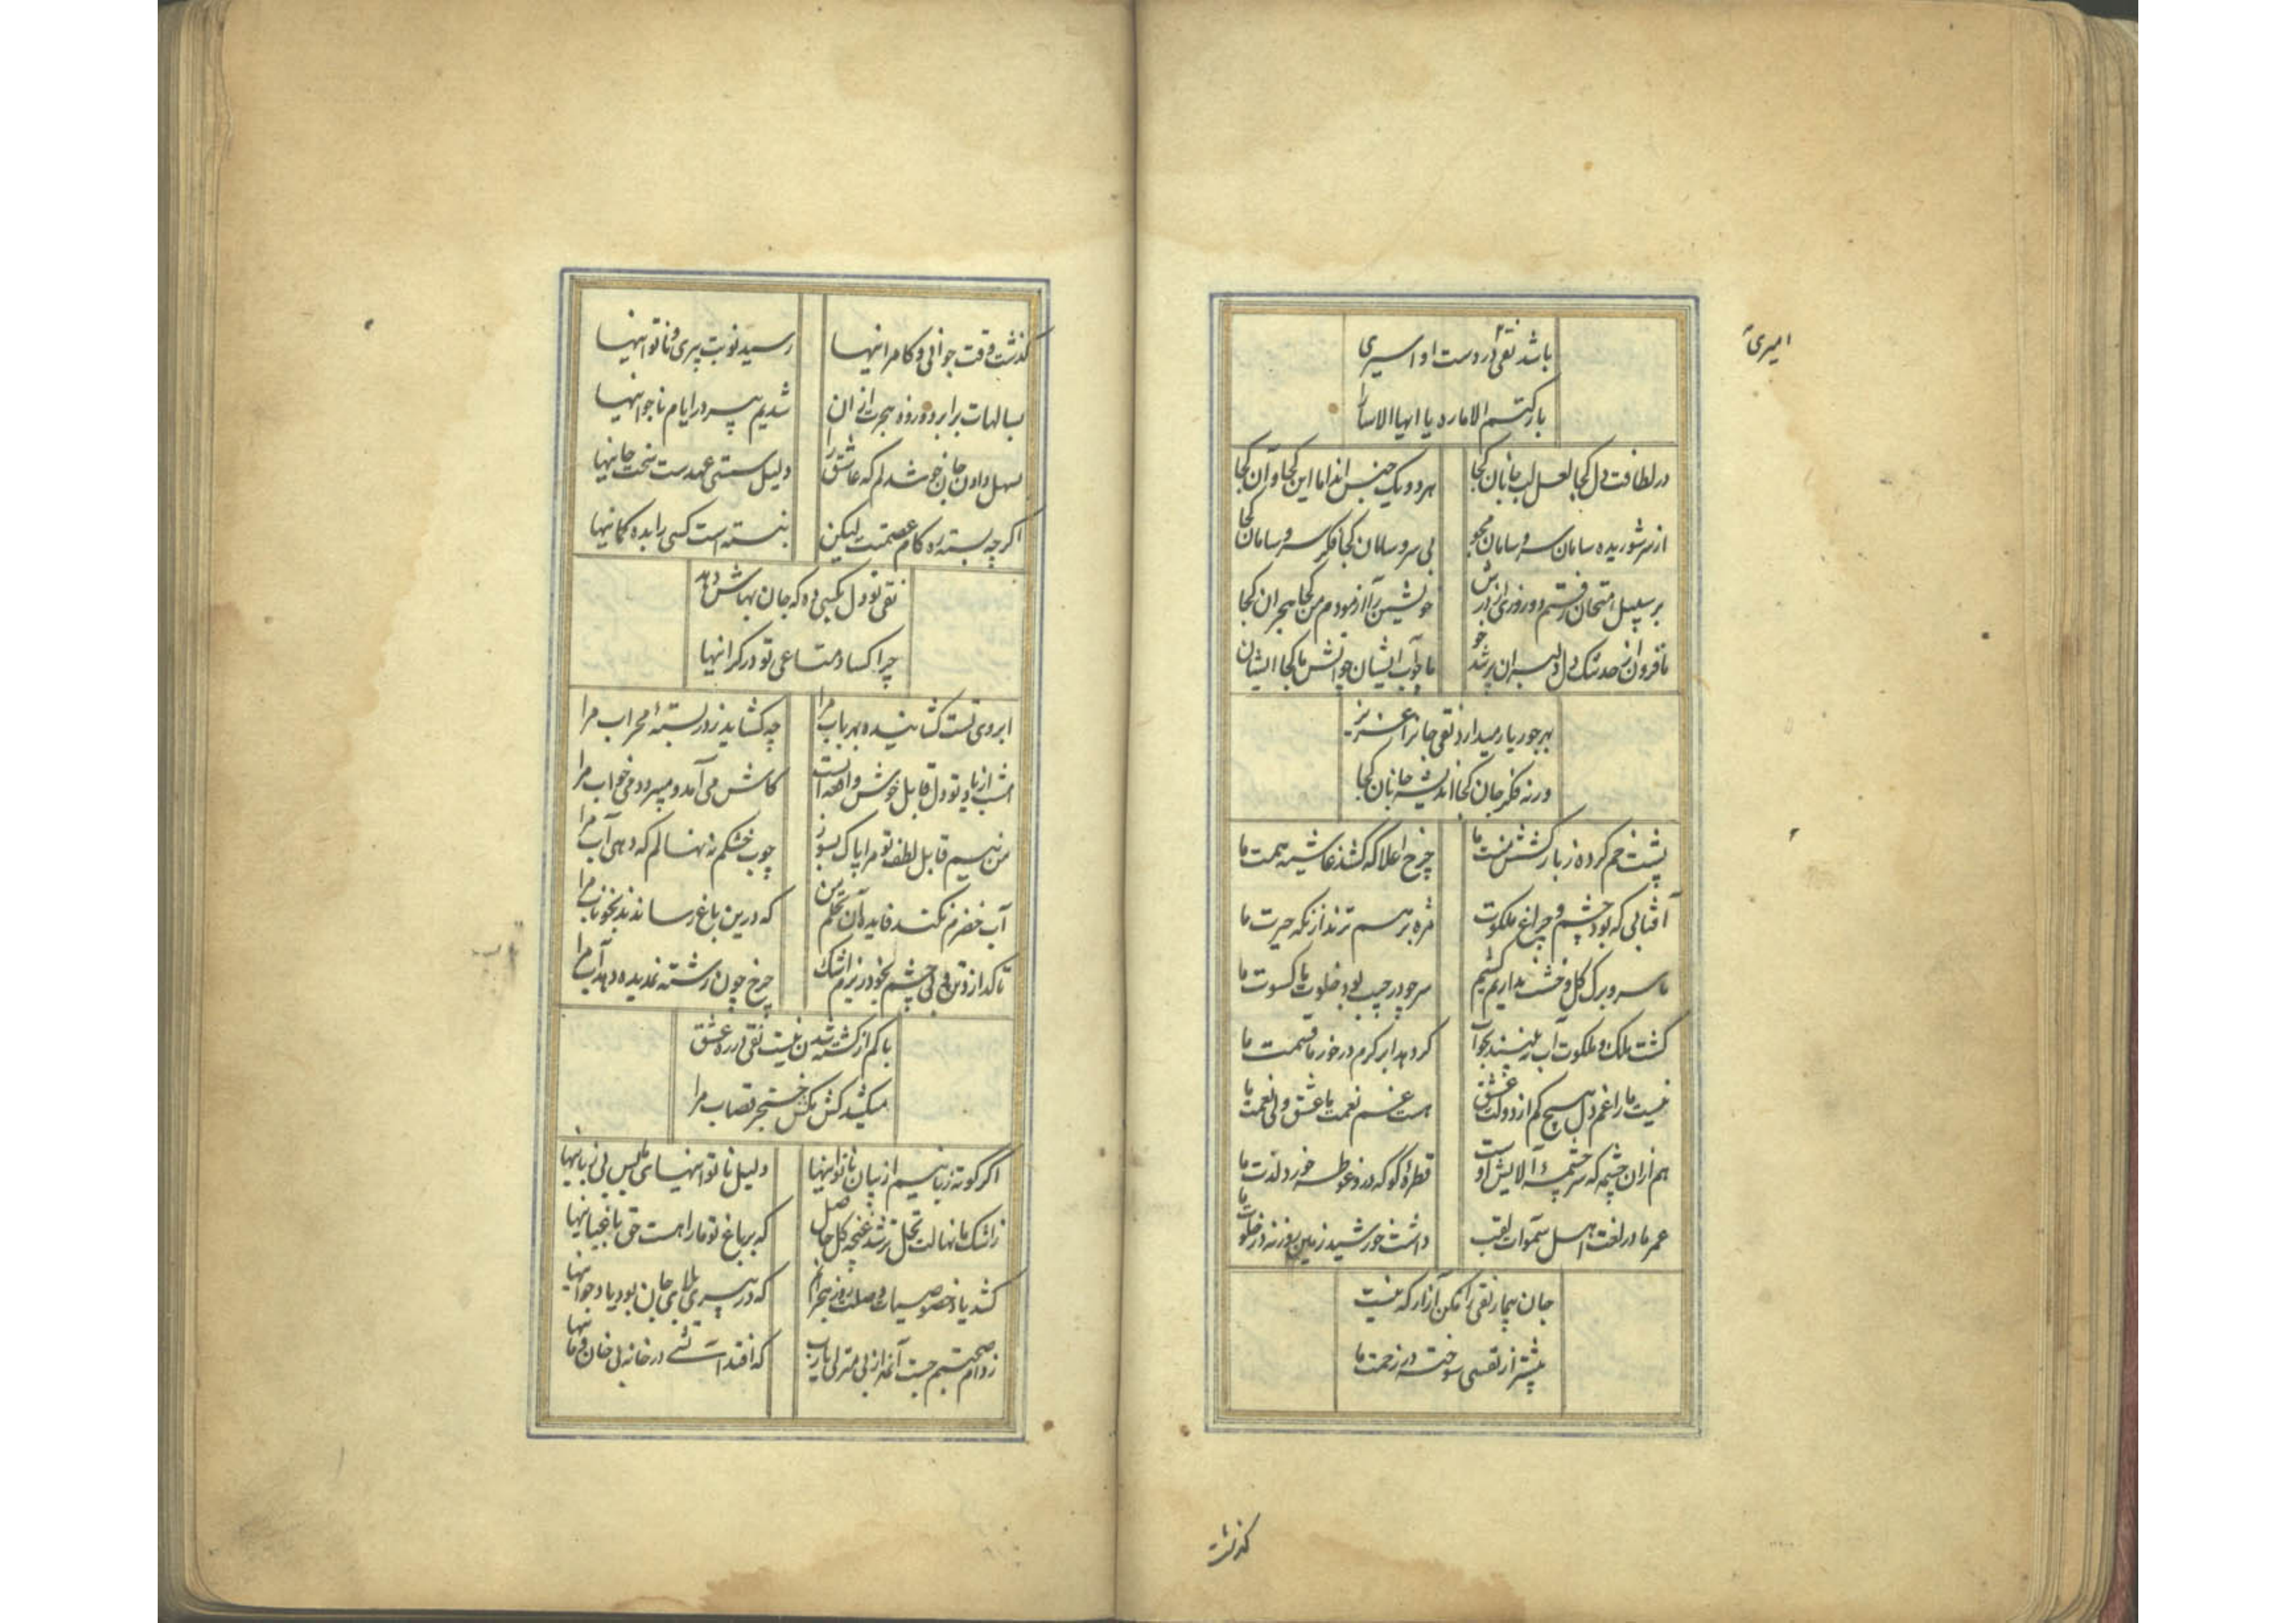 امیری
باشد نقی در دست او اسیری
بارکتم الاماره یا ایها الاسارا
در لطافت دل کجا لعل لب جانان کجا هر دو یک جنس اند اما این کجا و آن کجا
از سر شوریده سامان سر و سامان مجو بی سر و سامان کجا فکر سر و سامان کجا
بر سبیل امتحان رفتم دو روزی از درش خویشتن را آزمودم من کجا هجران کجا
ما فرو از صد تنک دل دلبران پر شد ما چو آب ایشان چو آتش ما کجا ایشان
بهر جور یار میدارد نقی جانرا عزیز
ورنه فکر جان کجا اندیشه جانان کجا
پشت خم کرده ز بار کشش منت ما چرخ اعلا که کشد غاشیه همت ما
آفتابی که بود چشم و چراغ ملکوت مژه بر هم نزند از نکه حیرت ما
ما سر و برک کل و خشت نداریم کشیم سر چو در جیب بود خلوت ما کسوت ما
کشت ملک و ملکوت آب نبینند بخواب کر دهد ابر کرم در خور ما قسمت ما
نیست ما را غم دل هیچ کم از دولت عشق هست غم نعمت ما عشق ولی نعمت ما
هم ازان چشمه که سرچشمهٔ آلایش اوست قطرهٔ کو که درو غوطه خورد لذت ما
عمر ما در لغت اهل سموات لقب داشت خورشید زمین روزنه در خلوت ما
جان بیمار نقی را مکن آزار که نیست
بیشتر از نفسی سوخته در زحمت ما
کذشت
کذشت وقت جوانی و کامرانیها رسید نوبت پیری و ناتوانیها
بسالهات برابر دو روزه هجرت ازان شدیم پیر در ایام ناجوانیها
بسهل دادن جان خوشدلم که عاشق را دلیل سستی عهدست سخت جانیها
اکر چه بسته ره کام عصمتت لیکن نبسته است کسی را بده کمانیها
نقی تو دل بکسی ده که جان بهاش دهد
چرا کساد متاعی تو در کرانیها
ابروی تست کشاینده بهر باب مرا چه کشاید ز در بستهٔ محراب مرا
امشب از یاد تو دل قابل خوش واقعه است کاش می آمد و میبرد دمی خواب مرا
من نیم قابل لطف تو مرا پاک بسوز چوب خشکم نه نهالم که دهی آب مرا
آب خضرم نکند فایده آن نخلم من که درین باغ رسانند بخوناب مرا
تا کدازد تن بی چشم بخود در نم اشک چرخ چون رشته ندیده دهد آب مرا
باکم از کشته شدن نیست نقی در ره عشق
میکشد کش مکش خنجر قصاب مرا
اکر کوته زبانیم از بیان ناتوانیها دلیل ناتوانیهای ما بس بی زبانیها
ز اشک ما نهالت نخل تر شد غنچه کل حاصل که بر باغ تو ما را هست حق باغبانیها
کشد یاد خصوصیات وصلت روز هجرانم که در پیری بلای جان بود یاد جوانیها
ز دام صحبتم جست آنمه از بی منزلی یارب که افتد آتشی در خانه بی خان و مانیها